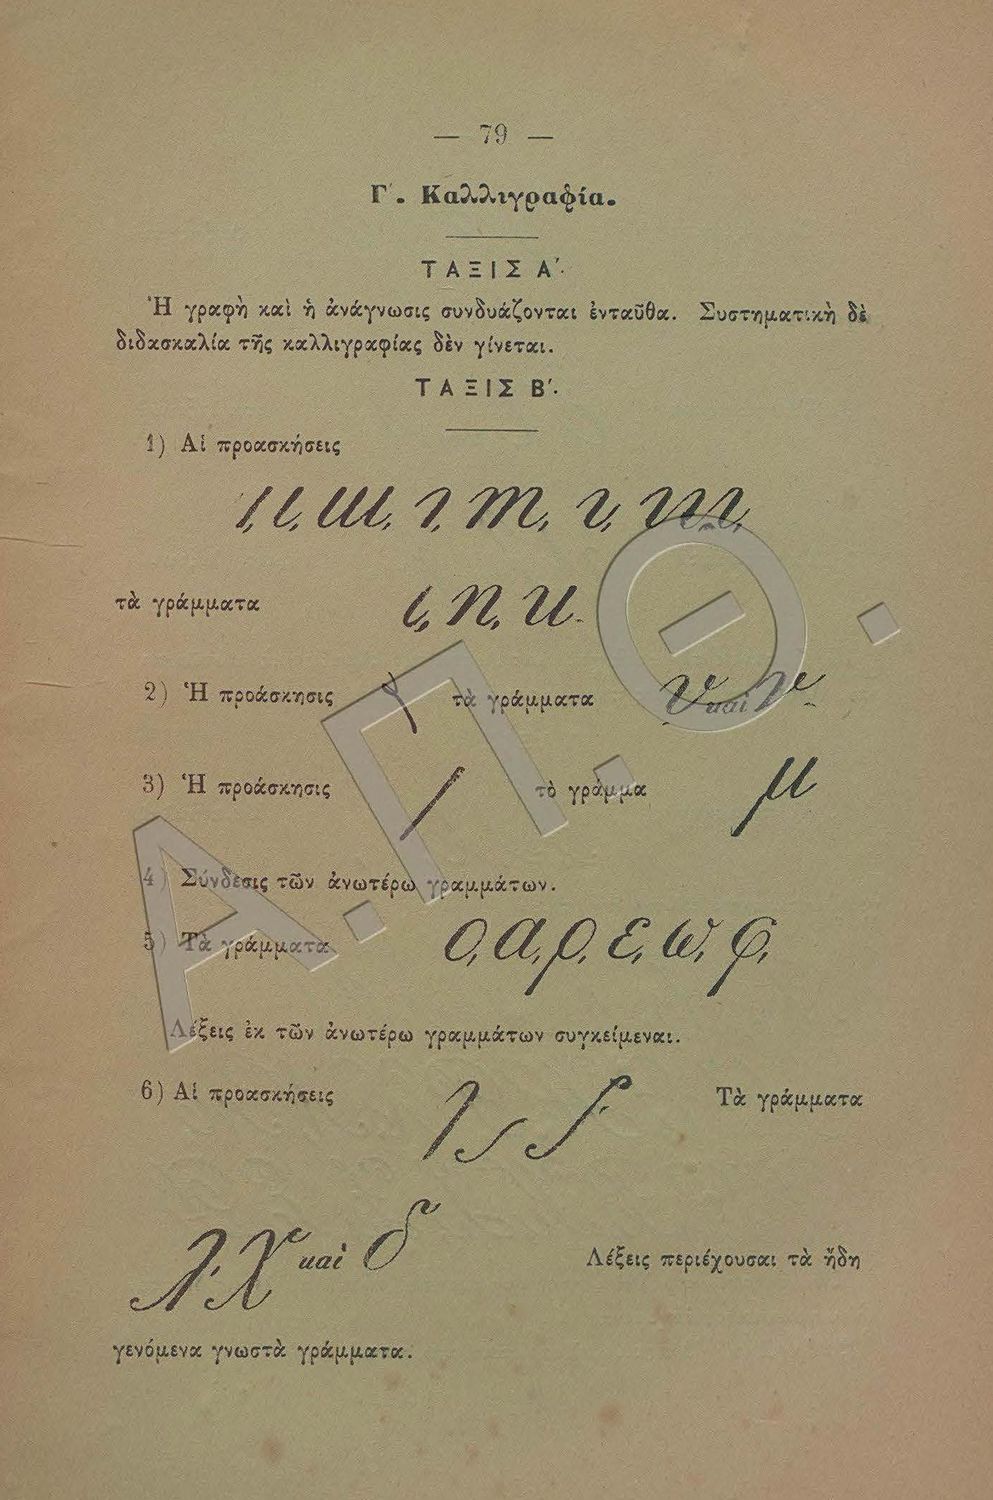 — 79 —
Γ΄. Καλλιγραφία.
ΤΑΞΙΣ Α΄.
Ἡ γραφὴ καὶ ἡ ἀνάγνωσις συνδυάζονται ἐνταῦθα. Συστηματικὴ δὲ
διδασκαλία τῆς καλλιγραφίας δὲν γίνεται.
ΤΑΞΙΣ Β΄.
1) Αἱ προασκήσεις
τὰ γράμματα ι, η, κ.
2) Ἡ προάσκησις τὰ γράμματα υ καὶ ν.
3) Ἡ προάσκησις τὸ γράμμα μ
4) Σύνδεσις τῶν ἀνωτέρω γραμμάτων.
5) Τὰ γράμματα ο, α, ρ, ε, ω, φ,
Λέξεις ἐκ τῶν ἀνωτέρω γραμμάτων συγκείμεναι.
6) Αἱ προασκήσεις Τὰ γράμματα
λ, χ καὶ δ Λέξεις περιέχουσαι τὰ ἤδη
γενόμενα γνωστὰ γράμματα.
Α.Π.Θ.